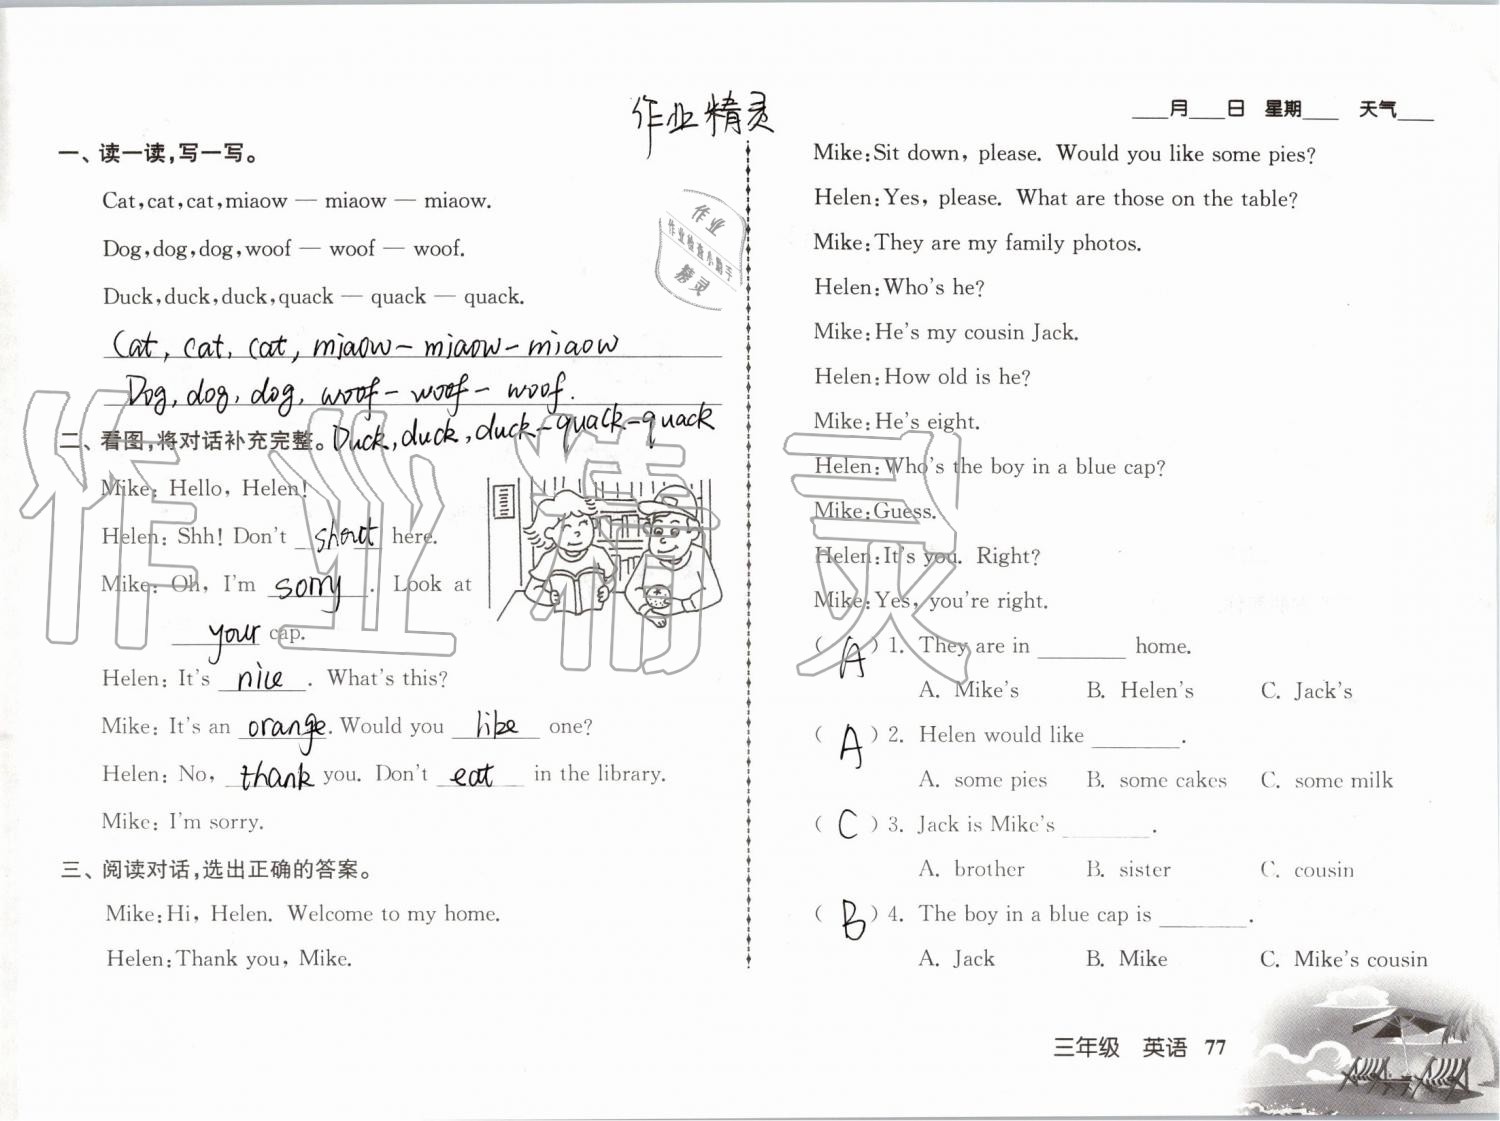 作业精灵
____月____日 星期____ 天气____
一、读一读,写一写。
Cat,cat,cat,miaow — miaow — miaow.
Dog,dog,dog,woof — woof — woof.
Duck,duck,duck,quack — quack — quack.
Cat, cat, cat, miaow - miaow - miaow
Dog, dog, dog, woof - woof - woof.
二、看图,将对话补充完整。Duck, duck, duck - quack - quack
Mike: Hello, Helen!
Helen: Shh! Don't shout here.
Mike: Oh, I'm sorry. Look at
your cap.
Helen: It's nice. What's this?
Mike: It's an orange. Would you like one?
Helen: No, thank you. Don't eat in the library.
Mike: I'm sorry.
三、阅读对话,选出正确的答案。
Mike:Hi, Helen. Welcome to my home.
Helen:Thank you, Mike.
作业
作业检查小助手
精灵
Mike:Sit down, please. Would you like some pies?
Helen:Yes, please. What are those on the table?
Mike:They are my family photos.
Helen:Who's he?
Mike:He's my cousin Jack.
Helen:How old is he?
Mike:He's eight.
Helen:Who's the boy in a blue cap?
Mike:Guess.
Helen:It's you. Right?
Mike:Yes, you're right.
( A ) 1. They are in ________ home.
A. Mike's B. Helen's C. Jack's
( A ) 2. Helen would like ________.
A. some pies B. some cakes C. some milk
( C ) 3. Jack is Mike's ________.
A. brother B. sister C. cousin
( B ) 4. The boy in a blue cap is ________.
A. Jack B. Mike C. Mike's cousin
三年级 英语 77
作业精灵